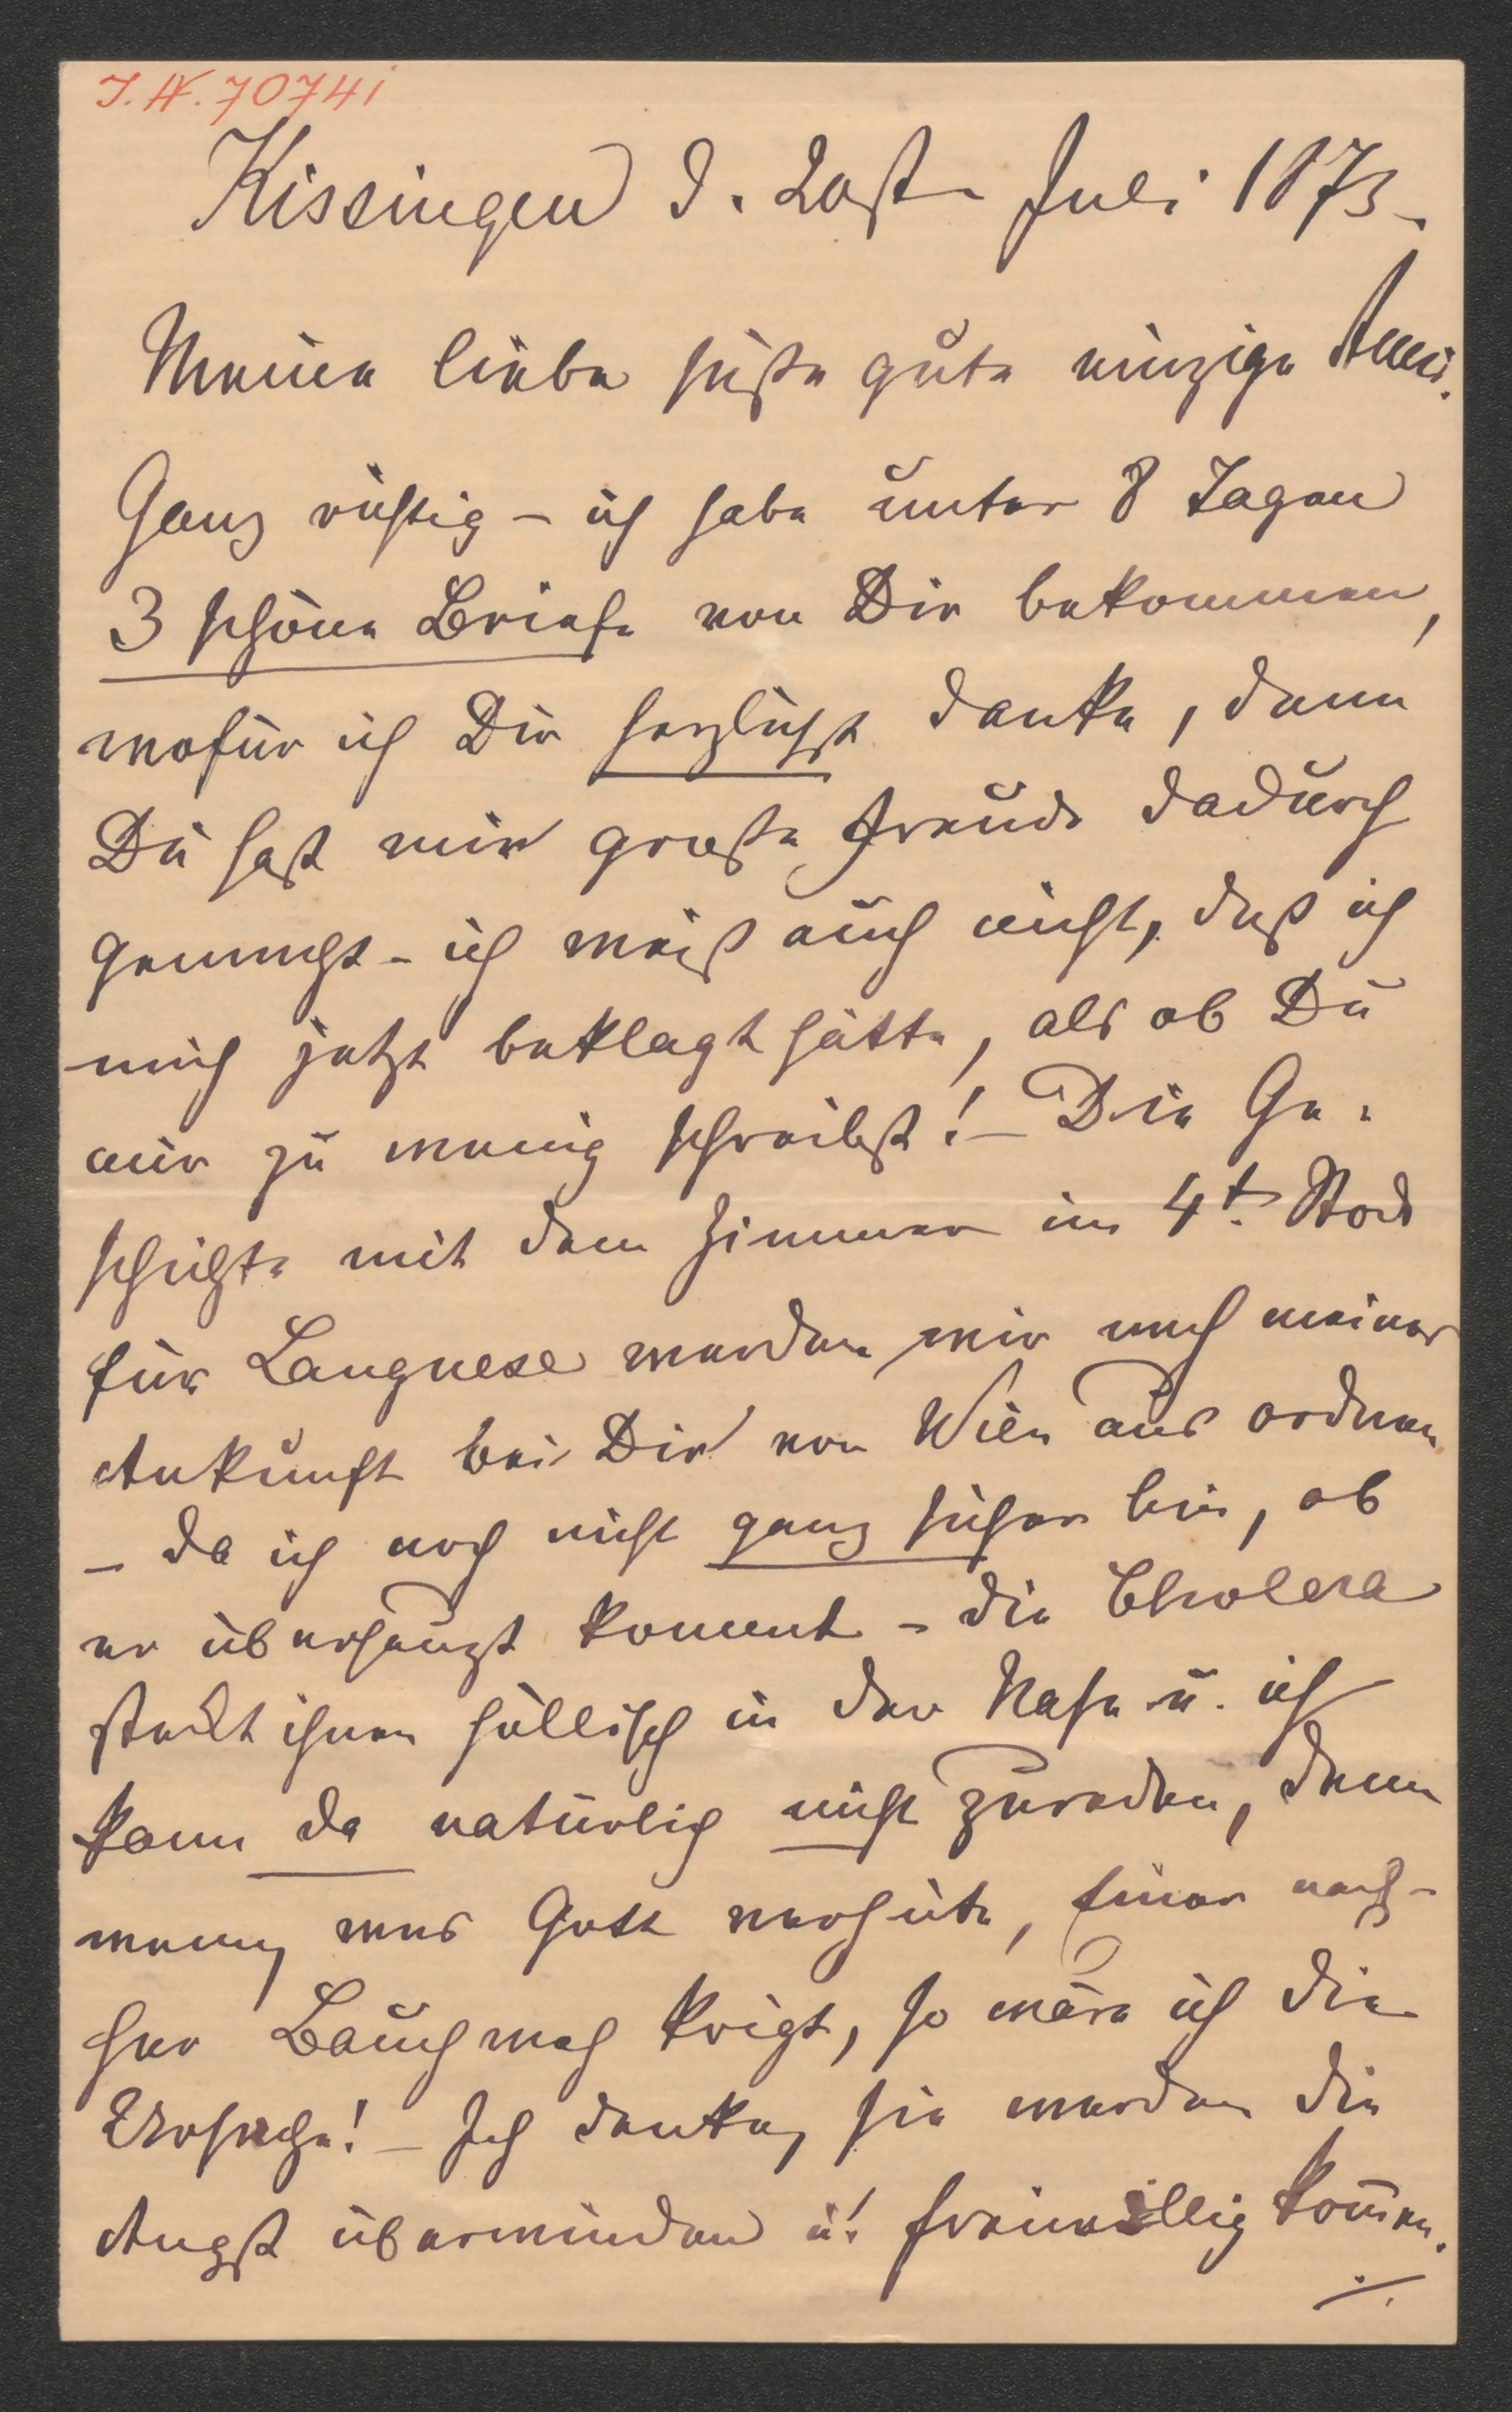 I.N. 70741
Kissingen d. 20ste Juli 1873.
Meine liebe süße gute einzige
Ganz richtig – ich habe unter 8 Tagen
3 schöne Briefe von Dir bekommen,
wofür ich Dir herzlichst danke, denn
Du hast mir große Freude dadurch
gemacht – ich weiß auch nicht, daß ich
mich jetzt beklagt hätte, als ob Du
mir zu wenig schreibst! – Die Ge-
schichte mit dem Zimmer im 4t. Stock
für Langnese werden wir nach meiner
Ankunft bei Dir von Wien aus ordnen
– da ich noch nicht ganz sicher bin, ob
er überhaupt kommt – die Cholera
steckt ihnen höllisch in der Nase u. ich
kann da natürlich nicht zureden, denn
wenn, was Gott verhüte, Einer nach-
her Bauchweh krigt, so wäre ich die
Ursache! – Ich denke, sie werden die
Angst überwinden u. freiwillig kom̄en.
./.